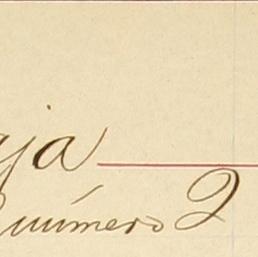 ja
número 2